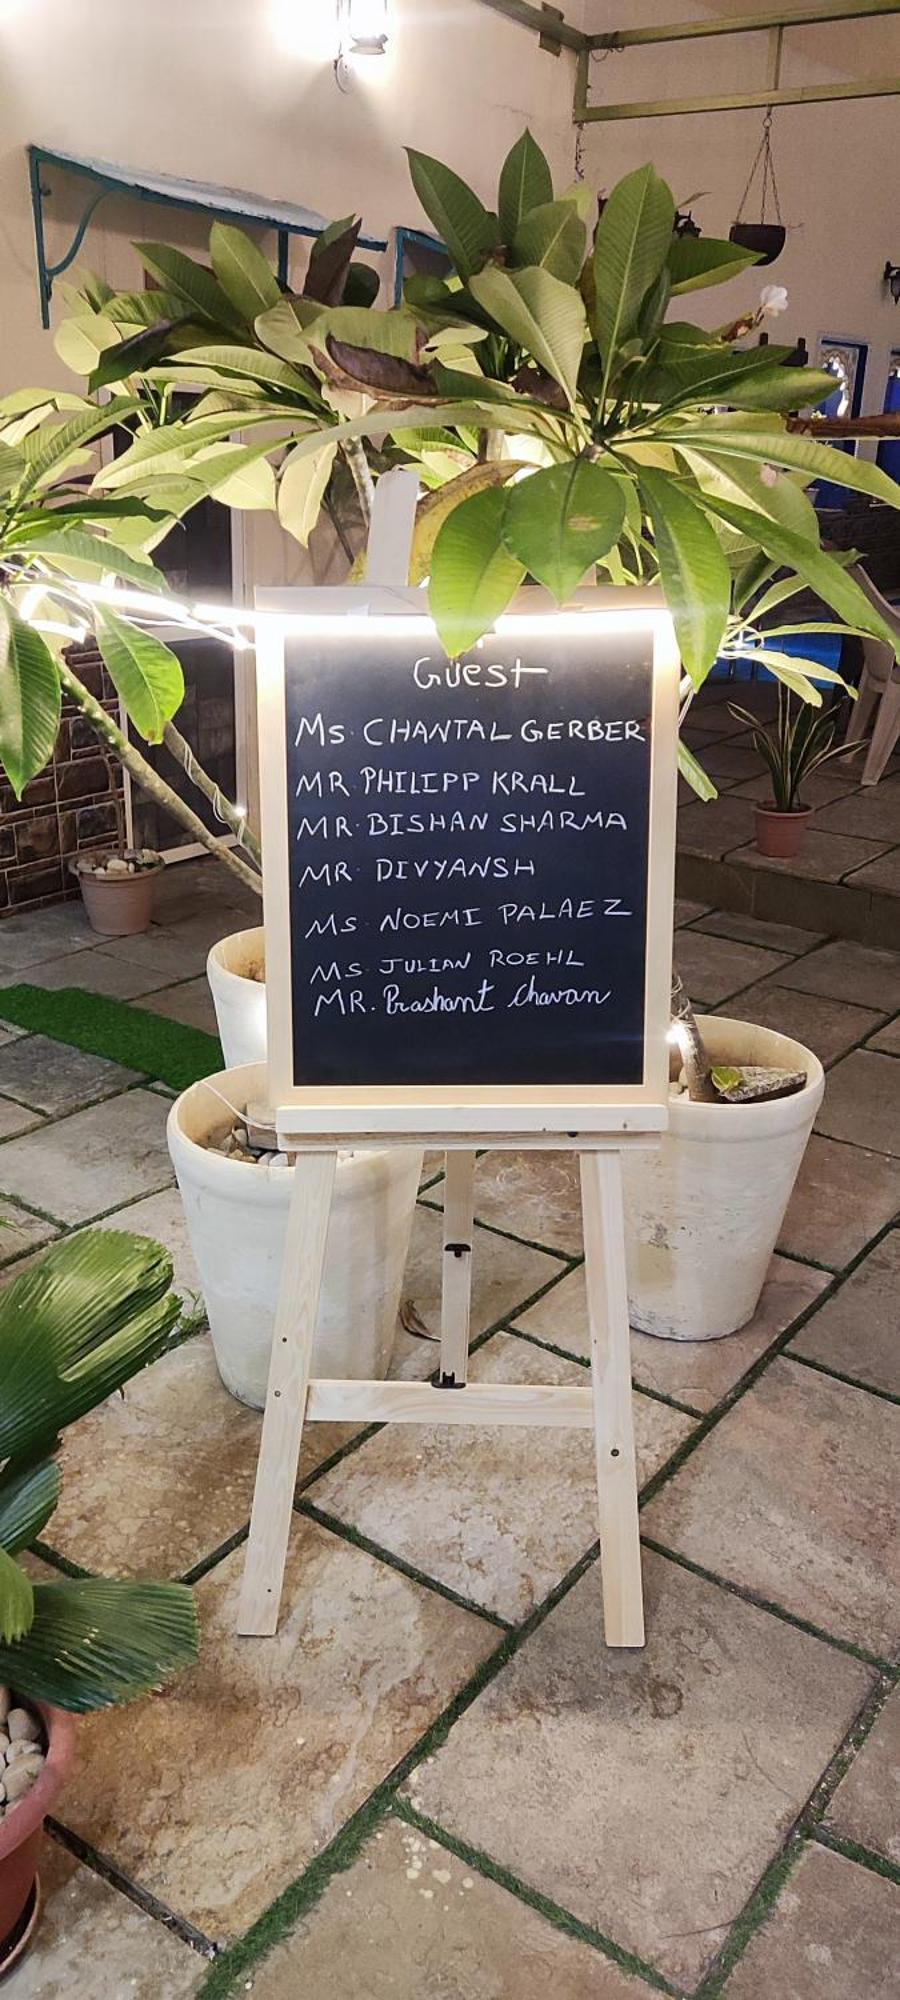 Guest
Ms. CHANTAL GERBER
MR. PHILIPP KRALL
MR. BISHAN SHARMA
MR. DIVYANSH
MS. NOEMI PALAEZ
MS. JULIAN ROEHL
MR. Prashant Chavan